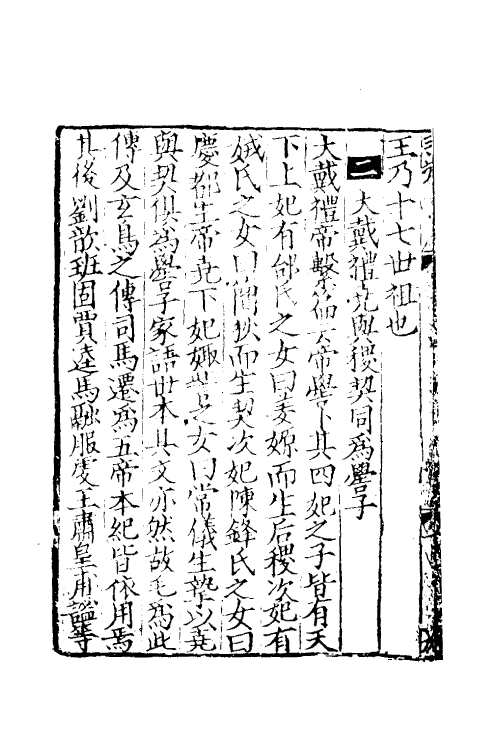 王乃十七世祖也
二 大戴禮堯與稷契同爲嚳子
大戴禮帝繫篇云帝嚳卜其四妃之子皆有天
下上妃有邰氏之女曰姜嫄而生后稷次妃有
娀氏之女曰簡狄而生契次妃陳鋒氏之女曰
慶都生帝堯下妃娵訾氏之女曰常儀生摯以堯
與契俱爲嚳子家語世本其文亦然故毛爲此
傳及玄鳥之傳司馬遷爲五帝本紀皆依用焉
其後劉歆班固賈逵馬融服虔王肅皇甫謐等